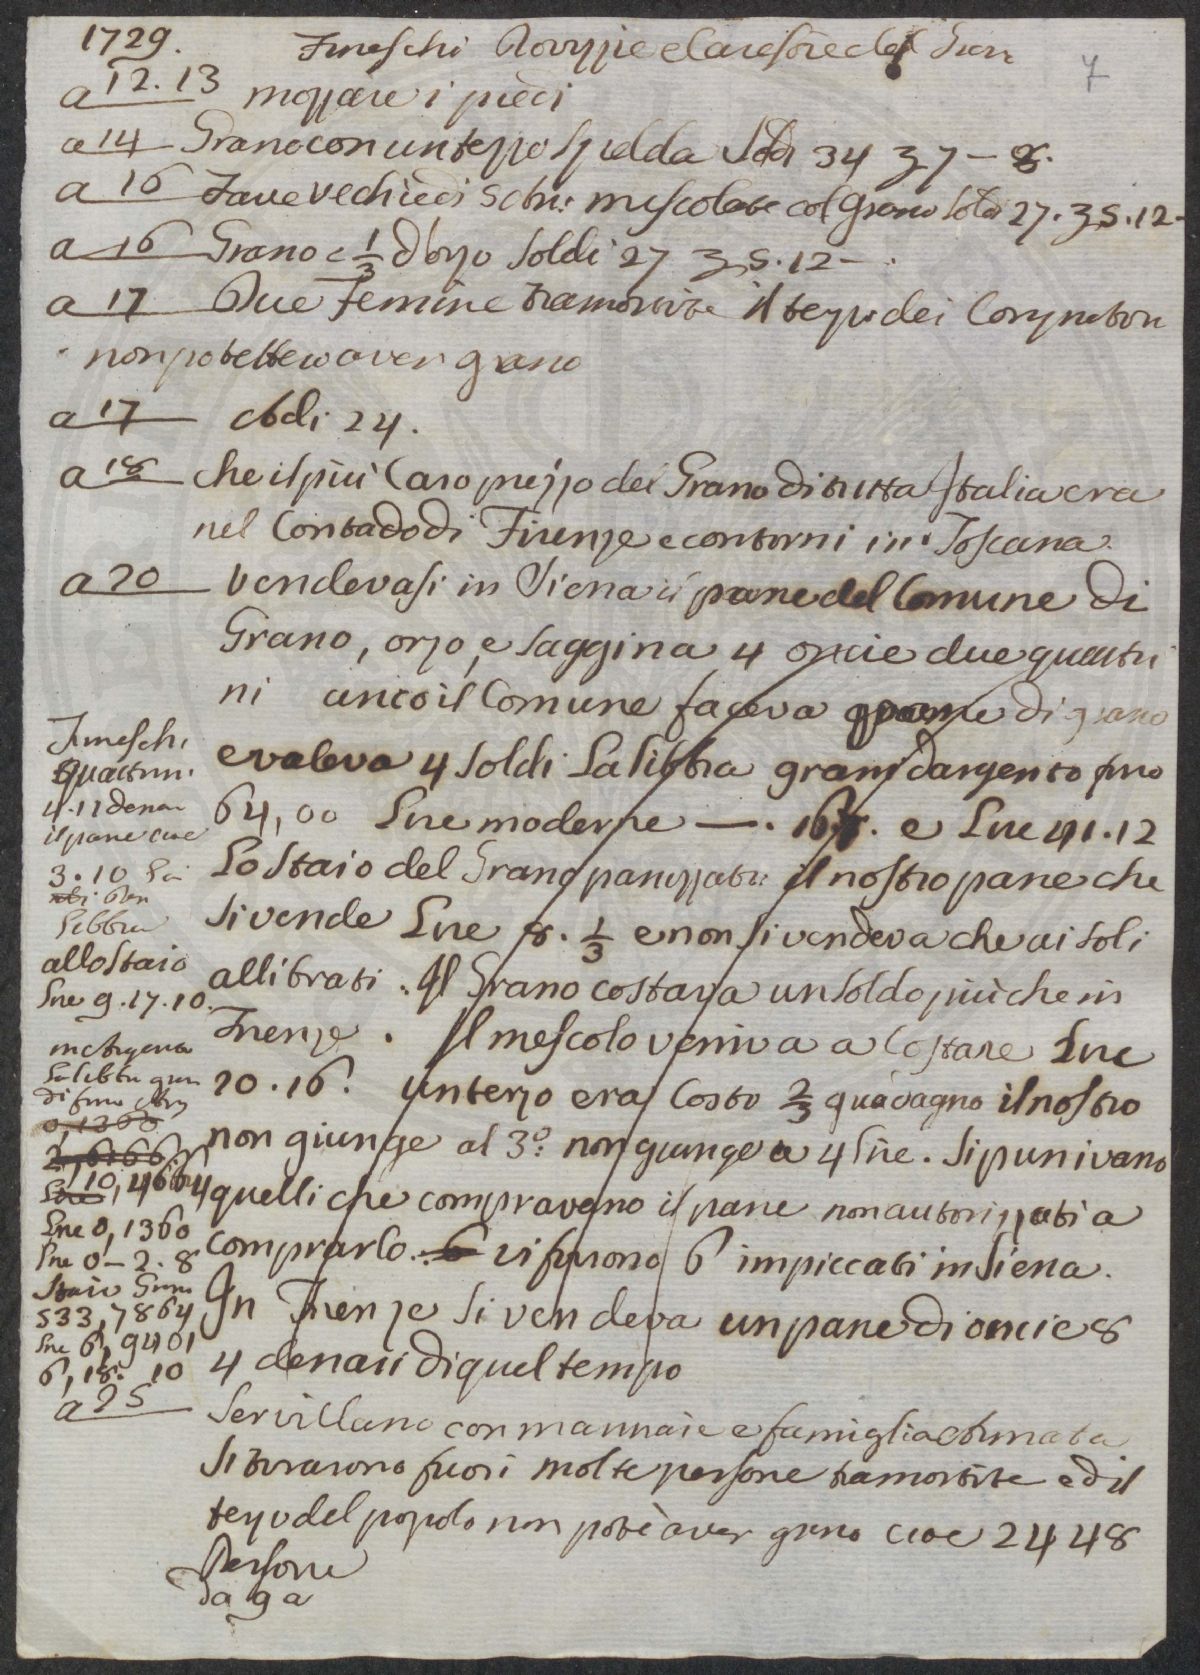 1729.
7
a 12.13 mozzare i piedi
a 14 Grano con un terzo spelda Soldi 34 37 — 8.
a 16 Fave vechie di mescolate col Grano Soldi 27. 3 5.12 —
a 16 Grano e 1/3 d'orzo Soldi 27 3 5.12 — .
a 17 Due Femine tramortite il terzo dei Compratori
non potettero aver grano
a 17 Adi 24.
a 18 che il più Caro prezzo del Grano di tutta Italia era
nel Contado di Firenze e contorni in Toscana.
a 20 Vendevasi in Siena il pane del Comune di
Grano, orzo, e Saggina 4 oncie due quattri
ni anco il Comune faceva pane di grano
e valeva 4 Soldi La libbra grani d'argento fino
64,00 Lire moderne — . e Lire 41.12
Lo Staio del Grano panizzato il nostro pane che
si vende Lire 8. 1/3 e non si vendeva che ai soli
allibrati. Il Grano costava un Soldo più che in
Firenze. Il mescolo veniva a Costare Lire
20.16. un terzo era Costo 2/3 guadagno il nostro
non giunge al 3.° non giunge a 4 Lire. Si punivano
quelli che compravano il pane non autorizzati a
comprarlo. vi furono 6 impiccati in Siena.
In Firenze si vendeva un pane di oncie 8
4 denari di quel tempo
Quattrini
4.12 denari
il pane cioè
3.10
Libbra
allo Staio
Lire 9.17.10.
La libbra
di fino
0,1360
2,6166
10,4664
Lire 0,1360
Lire 0—2.8
Staio Grani
533,7864
Lire 6,9401
6,18.10
a 25 Servillano con mannaie e famiglia armata
Si tirarono fuori molte persone tramortite ed il
terzo del popolo non potè aver grano cioè 2448
Persone